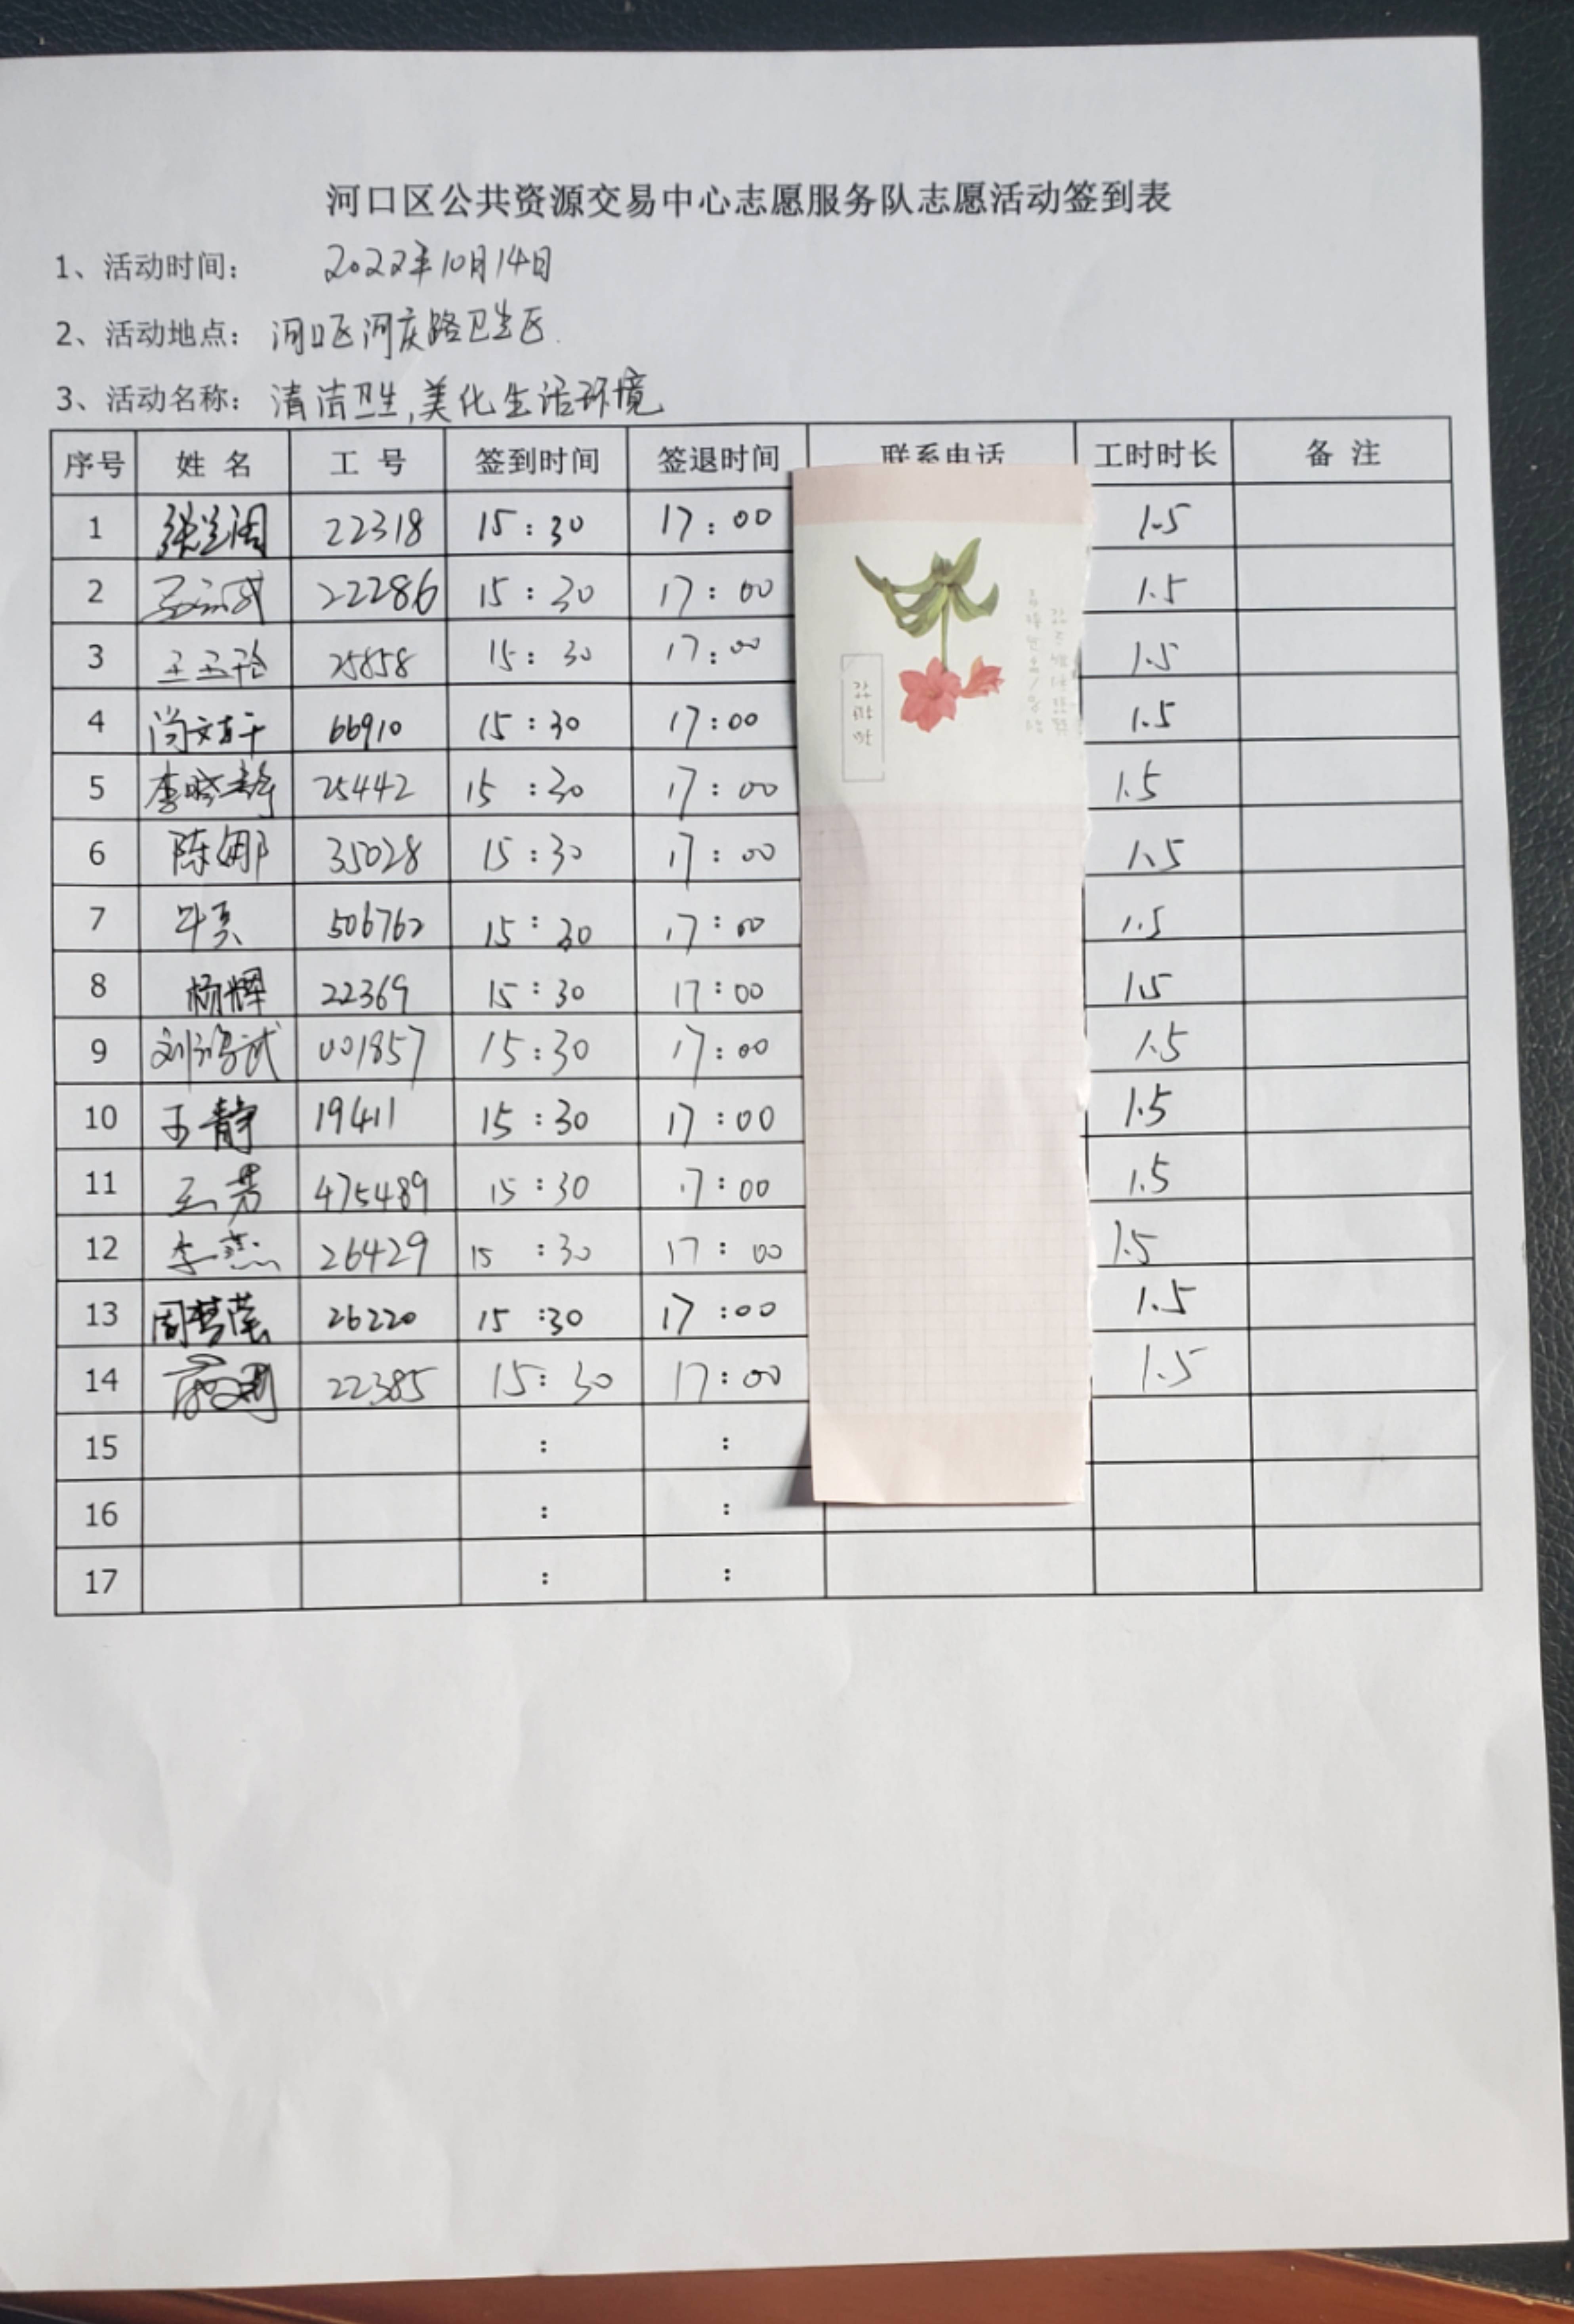 河口区公共资源交易中心志愿服务队志愿活动签到表
1、活动时间: 2022年10月14日
2、活动地点: 河口区河庆路卫生区.
3、活动名称: 清洁卫生,美化生活环境
序号 姓名 工号 签到时间 签退时间 联系电话 工时时长 备注
1 22318 15:30 17:00 1.5
2 22286 15:30 17:00 1.5
3 25858 15:30 17:00 1.5
4 66910 15:30 17:00 1.5
5 25442 15:30 17:00 1.5
6 陈娜 35028 15:30 17:00 1.5
7 506762 15:30 17:00 1.5
8 杨辉 22369 15:30 17:00 1.5
9 001857 15:30 17:00 1.5
10 王静 19411 15:30 17:00 1.5
11 王芳 475489 15:30 17:00 1.5
12 李燕 26429 15:30 17:00 1.5
13 周梦莹 26220 15:30 17:00 1.5
14 22385 15:30 17:00 1.5
15 : :
16 : :
17 : :